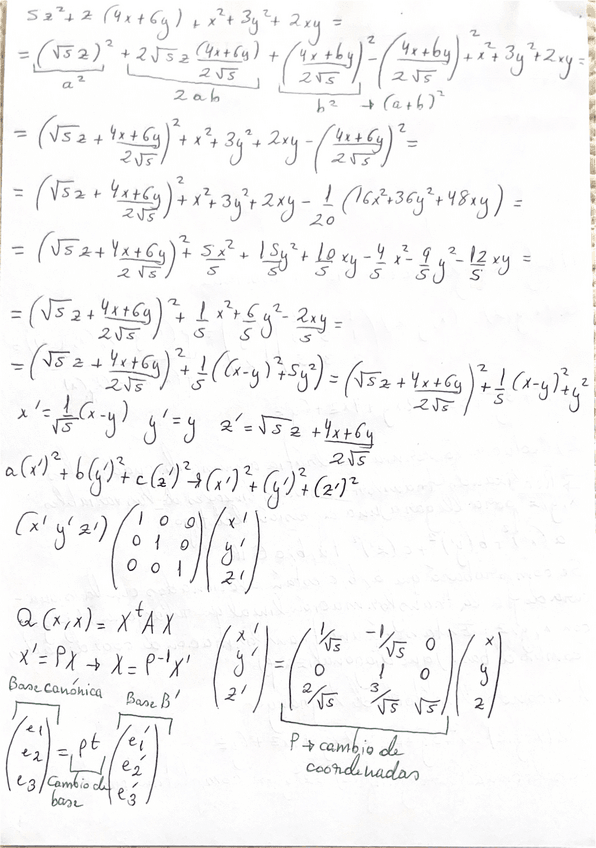 5z² + z (4x+6y) + x² + 3y² + 2xy =
= (√5 z)² + 2√5 z (4x+6y)/2√5 + ((4x+6y)/2√5)² - ((4x+6y)/2√5)² + x² + 3y² + 2xy =
a² 2ab b² → (a+b)²
= (√5 z + (4x+6y)/2√5)² + x² + 3y² + 2xy - ((4x+6y)/2√5)² =
= (√5 z + (4x+6y)/2√5)² + x² + 3y² + 2xy - 1/20 (16x² + 36y² + 48xy) =
= (√5 z + (4x+6y)/2√5)² + 5x²/5 + 15y²/5 + 10/5 xy - 4/5 x² - 9/5 y² - 12/5 xy =
= (√5 z + (4x+6y)/2√5)² + 1/5 x² + 6/5 y² - 2xy/5 =
= (√5 z + (4x+6y)/2√5)² + 1/5 ((x-y)² + 5y²) = (√5 z + (4x+6y)/2√5)² + 1/5 (x-y)² + y²
x' = 1/√5 (x-y) y' = y z' = √5 z + (4x+6y)/2√5
a(x')² + b(y')² + c(z')² → (x')² + (y')² + (z')²
(x' y' z') (1 0 0 (x'
0 1 0 y'
0 0 1) z')
Q(x,x) = XᵗAX
X' = PX → X = P⁻¹X'
(x' = (1/√5 -1/√5 0 (x
y' 0 1 0 y
z') 2/√5 3/√5 √5) z)
P → cambio de
coordenadas
Base canónica Base B'
(e1 (e1'
e2 = Pt e2'
e3) e3')
Cambio de
base